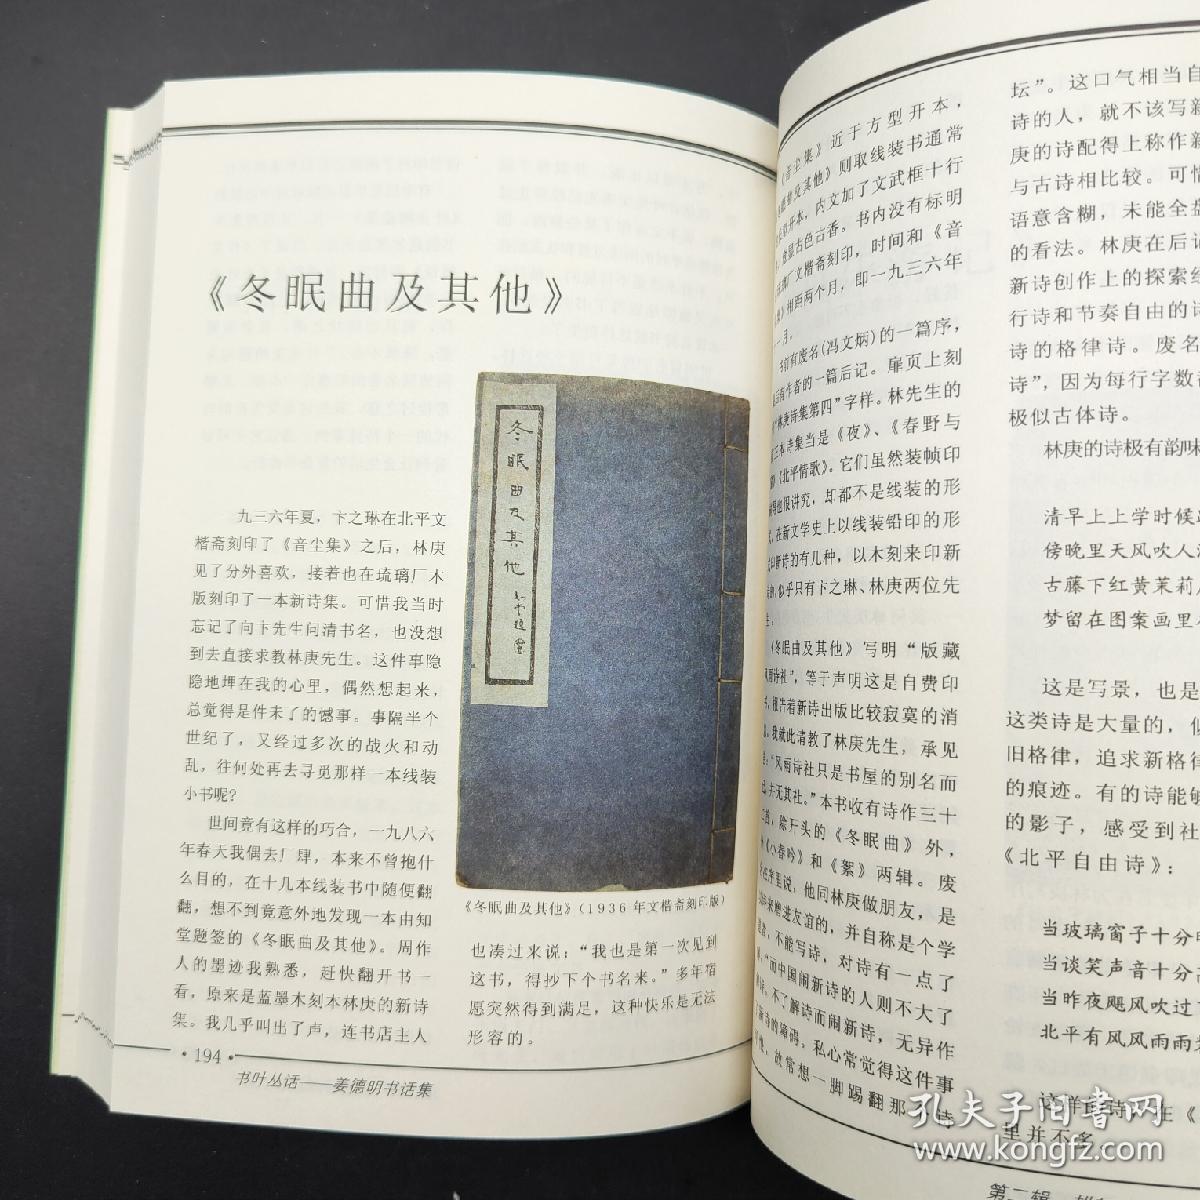 《冬眠曲及其他》
九三六年夏，卞之琳在北平文
楷斋刻印了《音尘集》之后，林庚
见了分外喜欢，接着也在琉璃厂木
版刻印了一本新诗集。可惜我当时
忘记了向卞先生问清书名，也没想
到去直接求教林庚先生。这件事隐
隐地埋在我的心里，偶然想起来，
总觉得是件未了的憾事。事隔半个
世纪了，又经过多次的战火和动
乱，往何处再去寻觅那样一本线装
小书呢？
世间竟有这样的巧合，一九八六
年春天我偶去厂肆，本来不曾抱什
么目的，在十几本线装书中随便翻
翻，想不到竟意外地发现一本由知
堂题签的《冬眠曲及其他》。周作
人的墨迹我熟悉，赶快翻开书一
看，原来是蓝墨木刻本林庚的新诗
集。我几乎叫出了声，连书店主人
冬眠曲及其他
《冬眠曲及其他》（1936年文楷斋刻印版）
也凑过来说：“我也是第一次见到
这书，得抄下个书名来。”多年宿
愿突然得到满足，这种快乐是无法
形容的。
·194·
书叶丛话——姜德明书话集
《音尘集》近于方型开本，
及其他》则取线装书通常
开本，内文加了文武框十行
古色古香。书内没有标明
文楷斋刻印，时间和《音
相距两个月，即一九三六年
一月。
有废名(冯文炳)的一篇序，
作者的一篇后记。扉页上刻
“林庚诗集第四”字样。林先生的
本诗集当是《夜》、《春野与
《北平情歌》。它们虽然装帧印
很讲究，却都不是线装的形
在新文学史上以线装铅印的形
新诗的有几种，以木刻来印新
似乎只有卞之琳、林庚两位先
《冬眠曲及其他》写明“版藏
风雨诗社”，等于声明这是自费印
着新诗出版比较寂寞的消
我就此请教了林庚先生，承见
“风雨诗社只是书屋的别名而
并无其社。”本书收有诗作三十
首，除开头的《冬眠曲》外，
《小春吟》和《絮》两辑。废
序里说，他同林庚做朋友，是
来增进友谊的，并自称是个学
不能写诗，对诗有一点了
“而中国闹新诗的人则不大了
不了解诗而闹新诗，无异作
新诗的障碍，私心常觉得这件事
故常想一脚踢翻那个诗
坛”。这口气相当自
诗的人，就不该写新
庚的诗配得上称作新
与古诗相比较。可惜
语意含糊，未能全盘
的看法。林庚在后记
新诗创作上的探索经
行诗和节奏自由的诗
诗的格律诗。废名
诗”，因为每行字数
极似古体诗。
林庚的诗极有韵味
清早上上学时候
傍晚里天风吹人
古藤下红黄茉莉
梦留在图案画里
这是写景，也是
这类诗是大量的，但
旧格律，追求新格律
的痕迹。有的诗能够
的影子，感受到社
《北平自由诗》：
当玻璃窗子十分
当谈笑声音十分
当昨夜飓风吹过
北平有风风雨雨
这样的诗，在《
里并不多
第二辑
孔夫子旧书网
www.kongfz.com